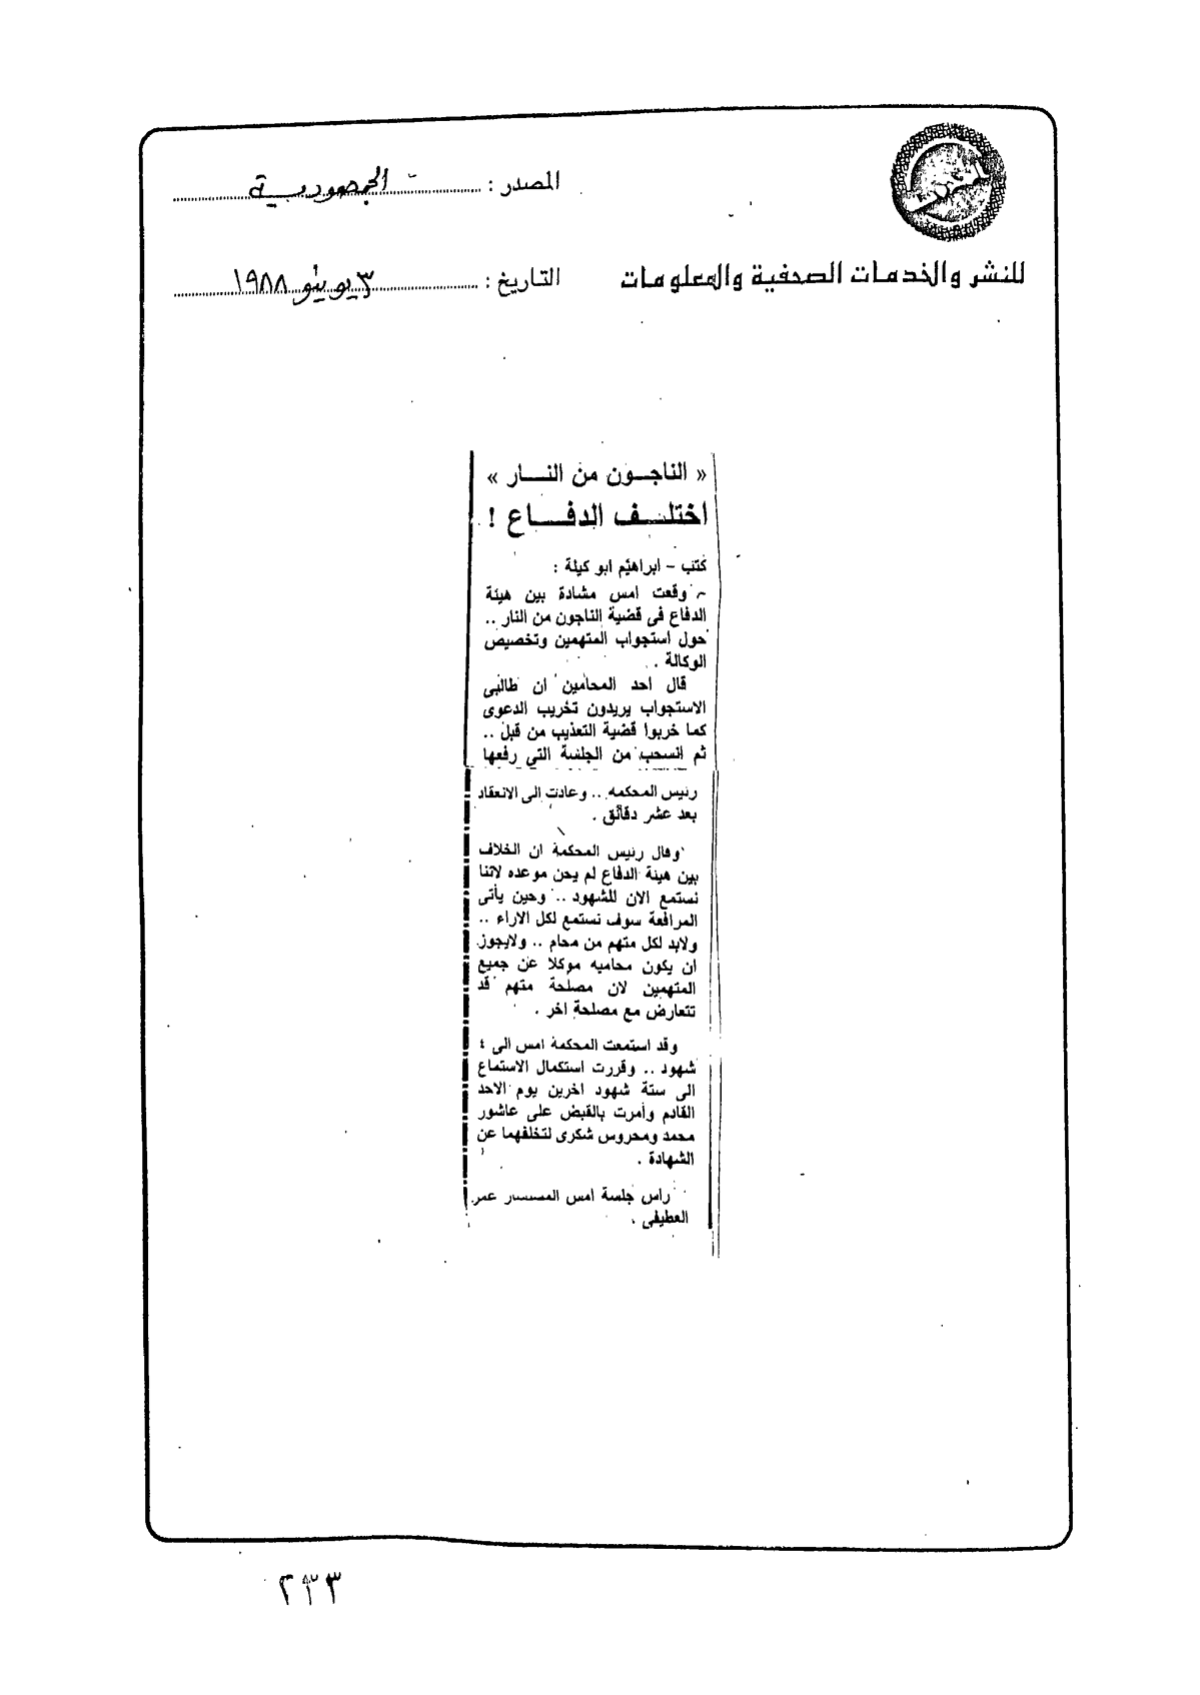 المصدر : الجمهورية
للنشر والخدمات الصحفية والمعلومات
التاريخ : ٣ يونيو ١٩٨٨
« الناجــون من النــار »
اختلــف الدفــاع !
كتب - ابراهيم ابو كيلة :
وقعت امس مشادة بين هيئة
الدفاع فى قضية الناجون من النار ..
حول استجواب المتهمين وتخصيص
الوكالة .
قال احد المحامين ان طالبى
الاستجواب يريدون تخريب الدعوى
كما خربوا قضية التعذيب من قبل ..
ثم انسحب من الجلسة التي رفعها
رئيس المحكمه .. وعادت إلى الانعقاد
بعد عشر دقائق .
وقال رئيس المحكمة ان الخلاف
بين هيئة الدفاع لم يحن موعده لاننا
نستمع الان للشهود .. وحين يأتى
المرافعة سوف نستمع لكل الاراء ..
ولابد لكل متهم من محام .. ولايجوز
ان يكون محاميه موكلا عن جميع
المتهمين لان مصلحة متهم قد
تتعارض مع مصلحة اخر .
وقد استمعت المحكمة امس الى ٤
شهود .. وقررت استكمال الاستماع
الى ستة شهود اخرين يوم الاحد
القادم وأمرت بالقبض على عاشور
محمد ومحروس شكرى لتخلفهما عن
الشهادة .
راس جلسة امس المستشار عمر
العطيفى .
٢٣٣